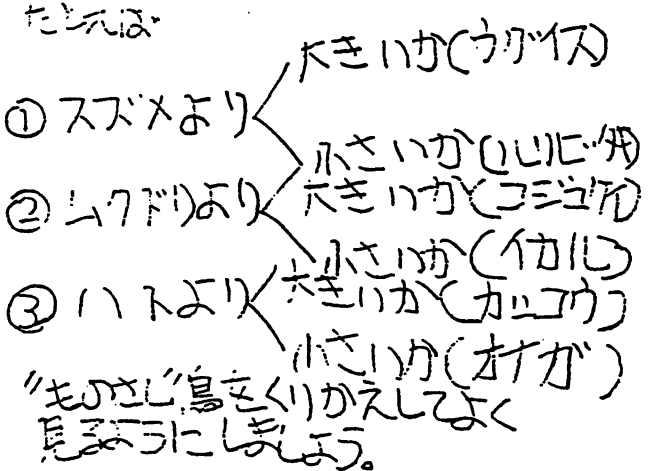 たとえば
大きいか(ウグイス)
①スズメより
小さいか(ルリビタキ)
②ムクドリより
大きいか(コジュケイ)
小さいか(イカル)
③ハトより
大きいか(カッコウ)
小さいか(オナガ)
"ものさし"鳥をくりかえしてよく
見るようにしましょう。